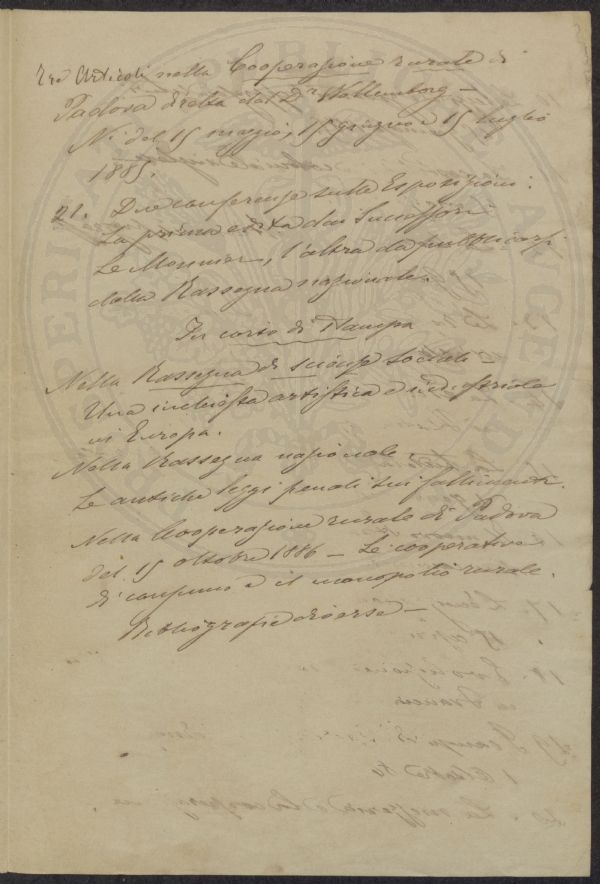 Tre Articoli nella Cooperazione rurale di
Padova diretta dal Dr Wollemborg —
Ni del 15 maggio, 15 giugno e 15 luglio
1885.
21. Due conferenze sulle Esposizioni:
La prima edita dai Successori
Le Monnier, l'altra da pubblicarsi
dalla Rassegna nazionale.
In corso di stampa
Nella Rassegna di scienze sociali
Una inchiesta artistica e industriale
in Europa.
Nella Rassegna nazionale.
Le antiche leggi penali sui fallimenti.
Nella Cooperazione rurale di Padova
del 15 ottobre 1886 — Le cooperative
di consumo e il monopolio rurale.
Bibliografie diverse —